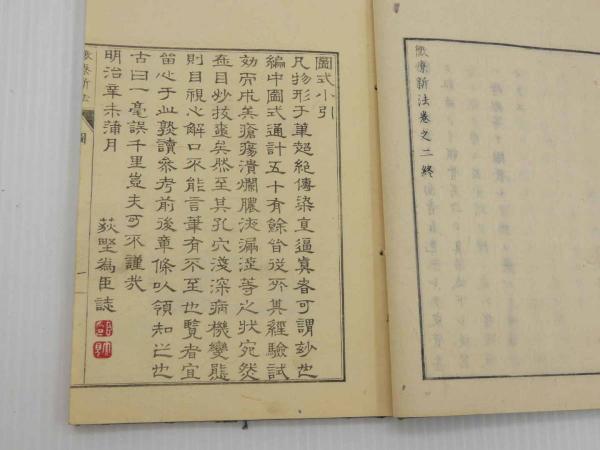 黴療新法巻之二終
圖式小引
凡物形于筆超絶傳染直逼真者可謂妙也
編中圖式通計五十有餘皆從所其經驗試
効而成美瘡瘍潰爛膿淡漏淫等之状宛然
在目妙拔盡矣然至其孔穴淺深病機變態
則目視心解口不能言筆有不至也覧者宜
留心于此熟讀參考前後章條以領知之也
古曰一毫誤千里豈夫可不謹哉
明治辛未蒲月
荻埜為臣誌
黴療新法
圖
一